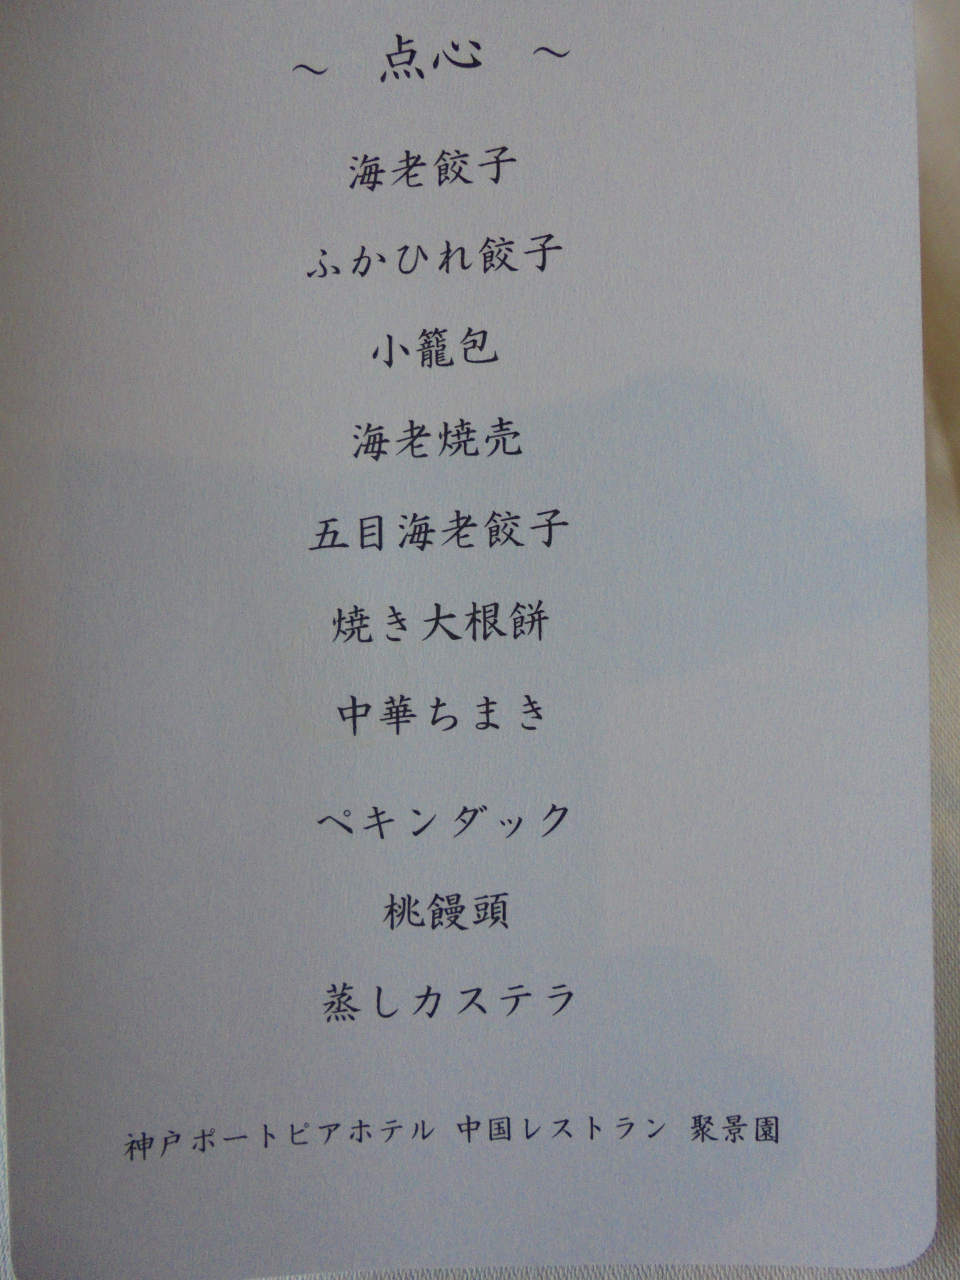 ～ 点心 ～
海老餃子
ふかひれ餃子
小籠包
海老焼売
五目海老餃子
焼き大根餅
中華ちまき
ペキンダック
桃饅頭
蒸しカステラ
神戸ポートピアホテル 中国レストラン 聚景園